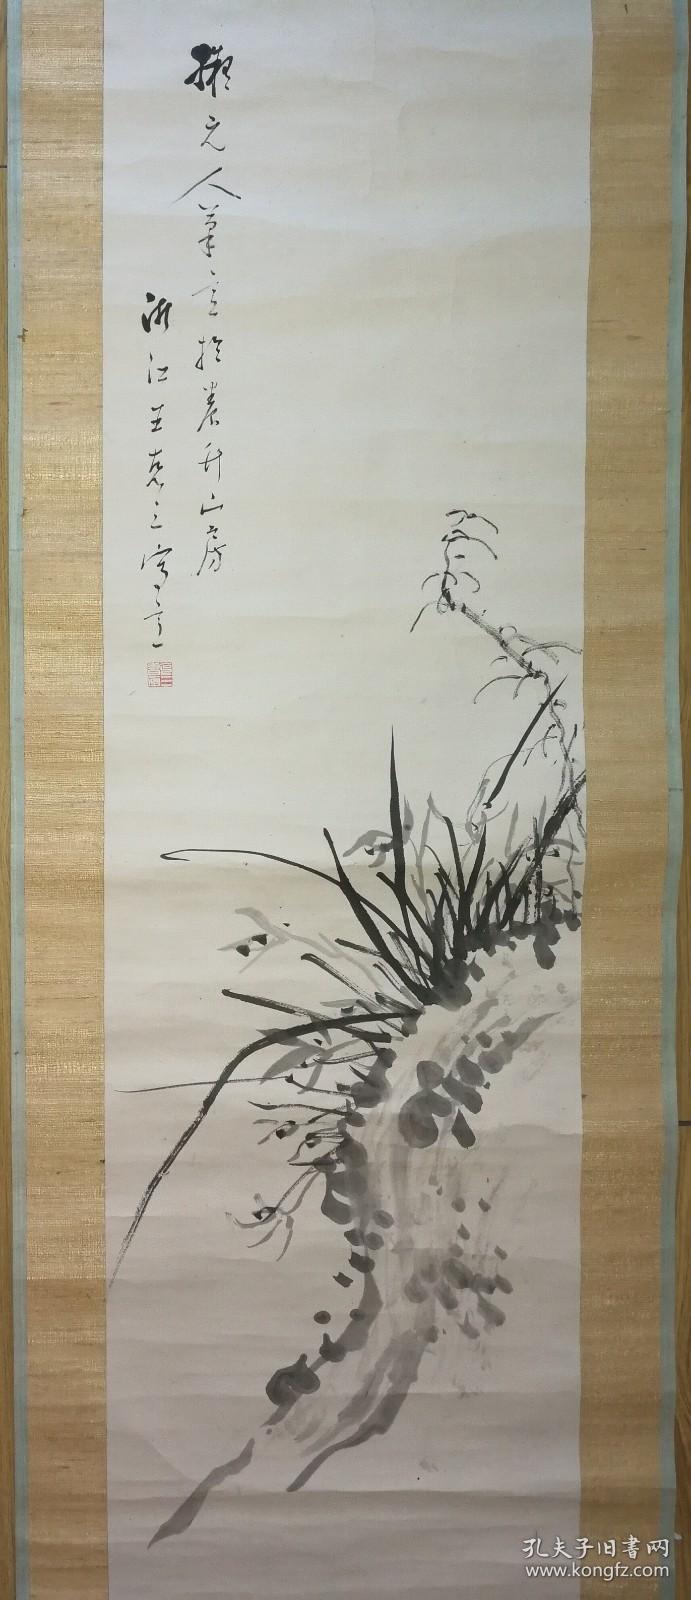 擬元人筆意於養升山房
浙江王克三寫意
孔夫子旧書网
www.kongfz.com